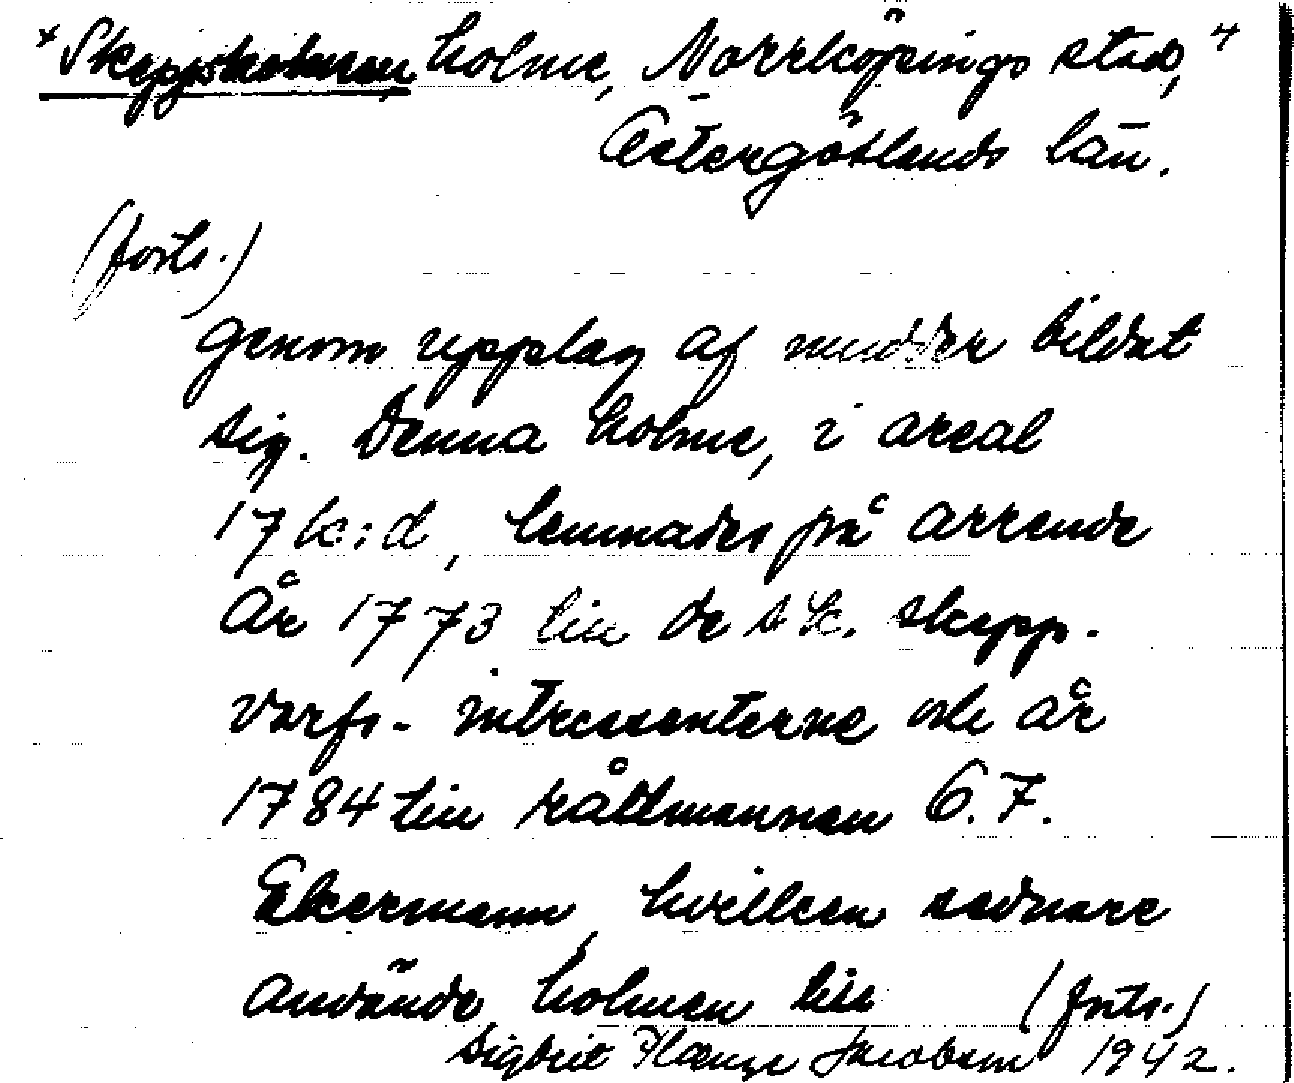 *Skeppsholmen, holme, Norrköpings stad, 4
Östergötlands län.
(forts.)
genom upplag af mudder bildat
sig. Denna holme, i areal
17 k:d, lemnades på arrende
År 1773 till de s k. skepp-
varfs- intressenterne och år
1784 till rådmannen G. F.
Ekermann, hvilken sednare
använde holmen till (forts.)
Sigbrit Plænge Jacobson 1942.